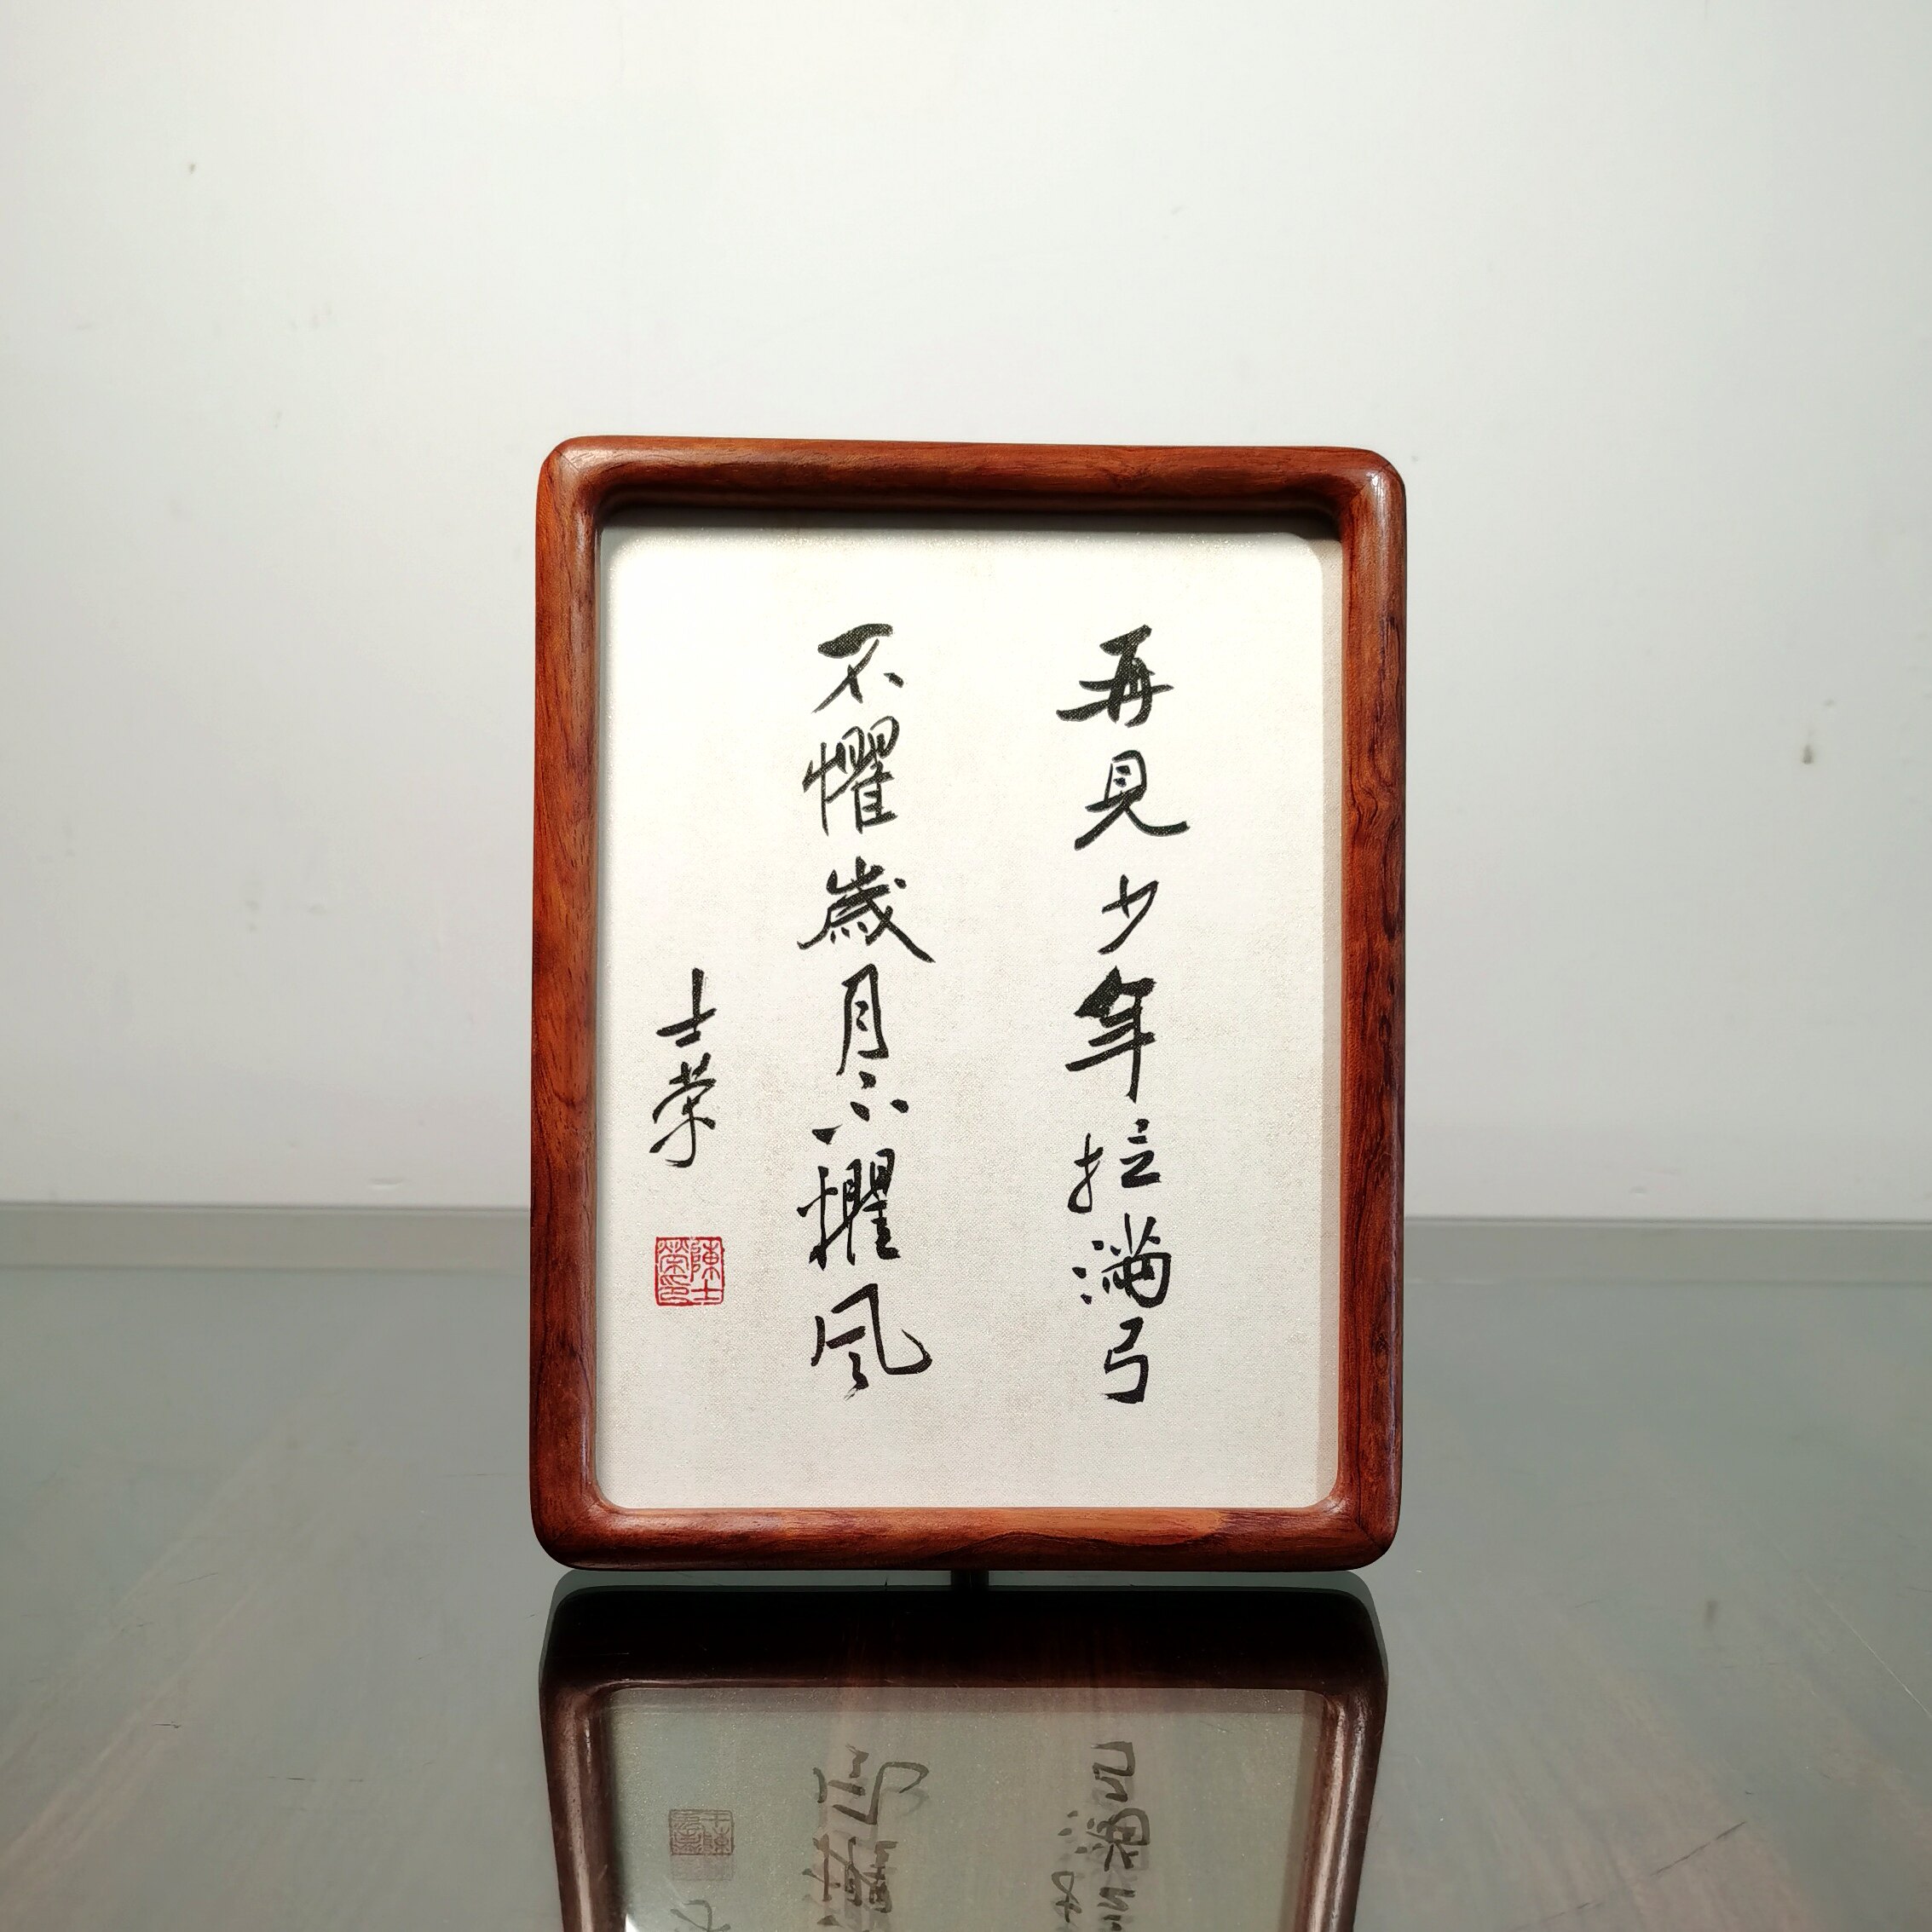 再見少年拉滿弓
不懼歲月不懼風
士荣
陳士榮印